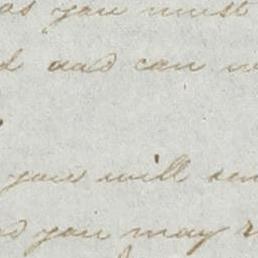 as you must
and can
you will
you may